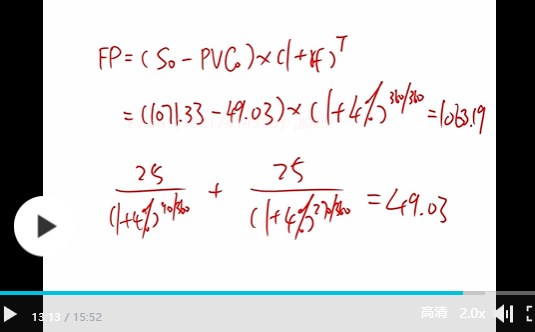 FP = (S₀ - PVC₀) × (1+rf)^T
= (1071.33 - 49.03) × (1+4%)^360/360 = 1063.19
25/(1+4%)^90/360 + 25/(1+4%)^270/360 = 49.03
13:13 / 15:52 高清 2.0x